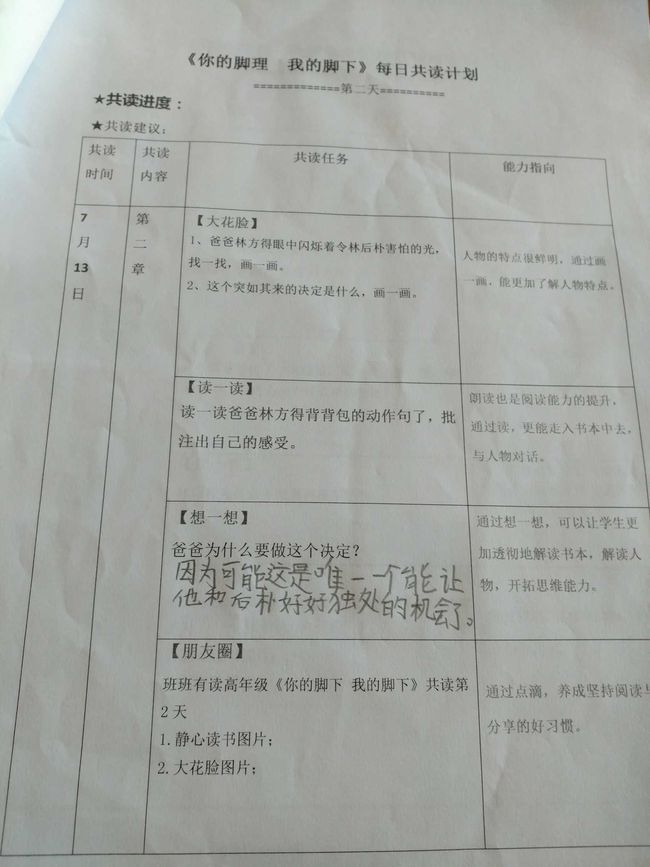 《你的脚理 我的脚下》每日共读计划
=============第二天==========
★共读进度：
★共读建议：
共读时间
共读内容
共读任务
能力指向
7月13日
第二章
【大花脸】
1、爸爸林方得眼中闪烁着令林后朴害怕的光，
找一找，画一画。
2、这个突如其来的决定是什么，画一画。
人物的特点很鲜明，通过画
一画，能更加了解人物特点。
【读一读】
读一读爸爸林方得背背包的动作句了，批
注出自己的感受。
朗读也是阅读能力的提升，
通过读，更能走入书本中去，
与人物对话。
【想一想】
爸爸为什么要做这个决定？
因为可能这是唯一一个能让
他和后朴好好独处的机会了。
通过想一想，可以让学生更
加透彻地解读书本，解读人
物，开拓思维能力。
【朋友圈】
班班有读高年级《你的脚下 我的脚下》共读第
2天
1.静心读书图片；
2.大花脸图片；
通过点滴，养成坚持阅读与
分享的好习惯。